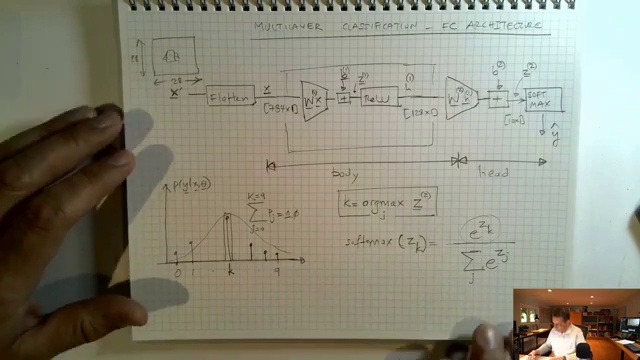 MULTILAYER CLASSIFICATION - FC ARCHITECTURE
28
28
X
Flatten
x
[784x1]
W⁽¹⁾x
b⁽¹⁾
+
z⁽¹⁾
ReLU
h⁽¹⁾
[128x1]
W⁽²⁾h⁽¹⁾
b⁽²⁾
+
z⁽²⁾
[10x1]
SOFT
MAX
ŷ
body
head
p(y|x,θ)
K=9
∑ Pⱼ = 1.0
j=0
0 1 k 9
k = argmax z⁽²⁾
j
softmax (zₖ) = e^zₖ
∑ e^zⱼ
j